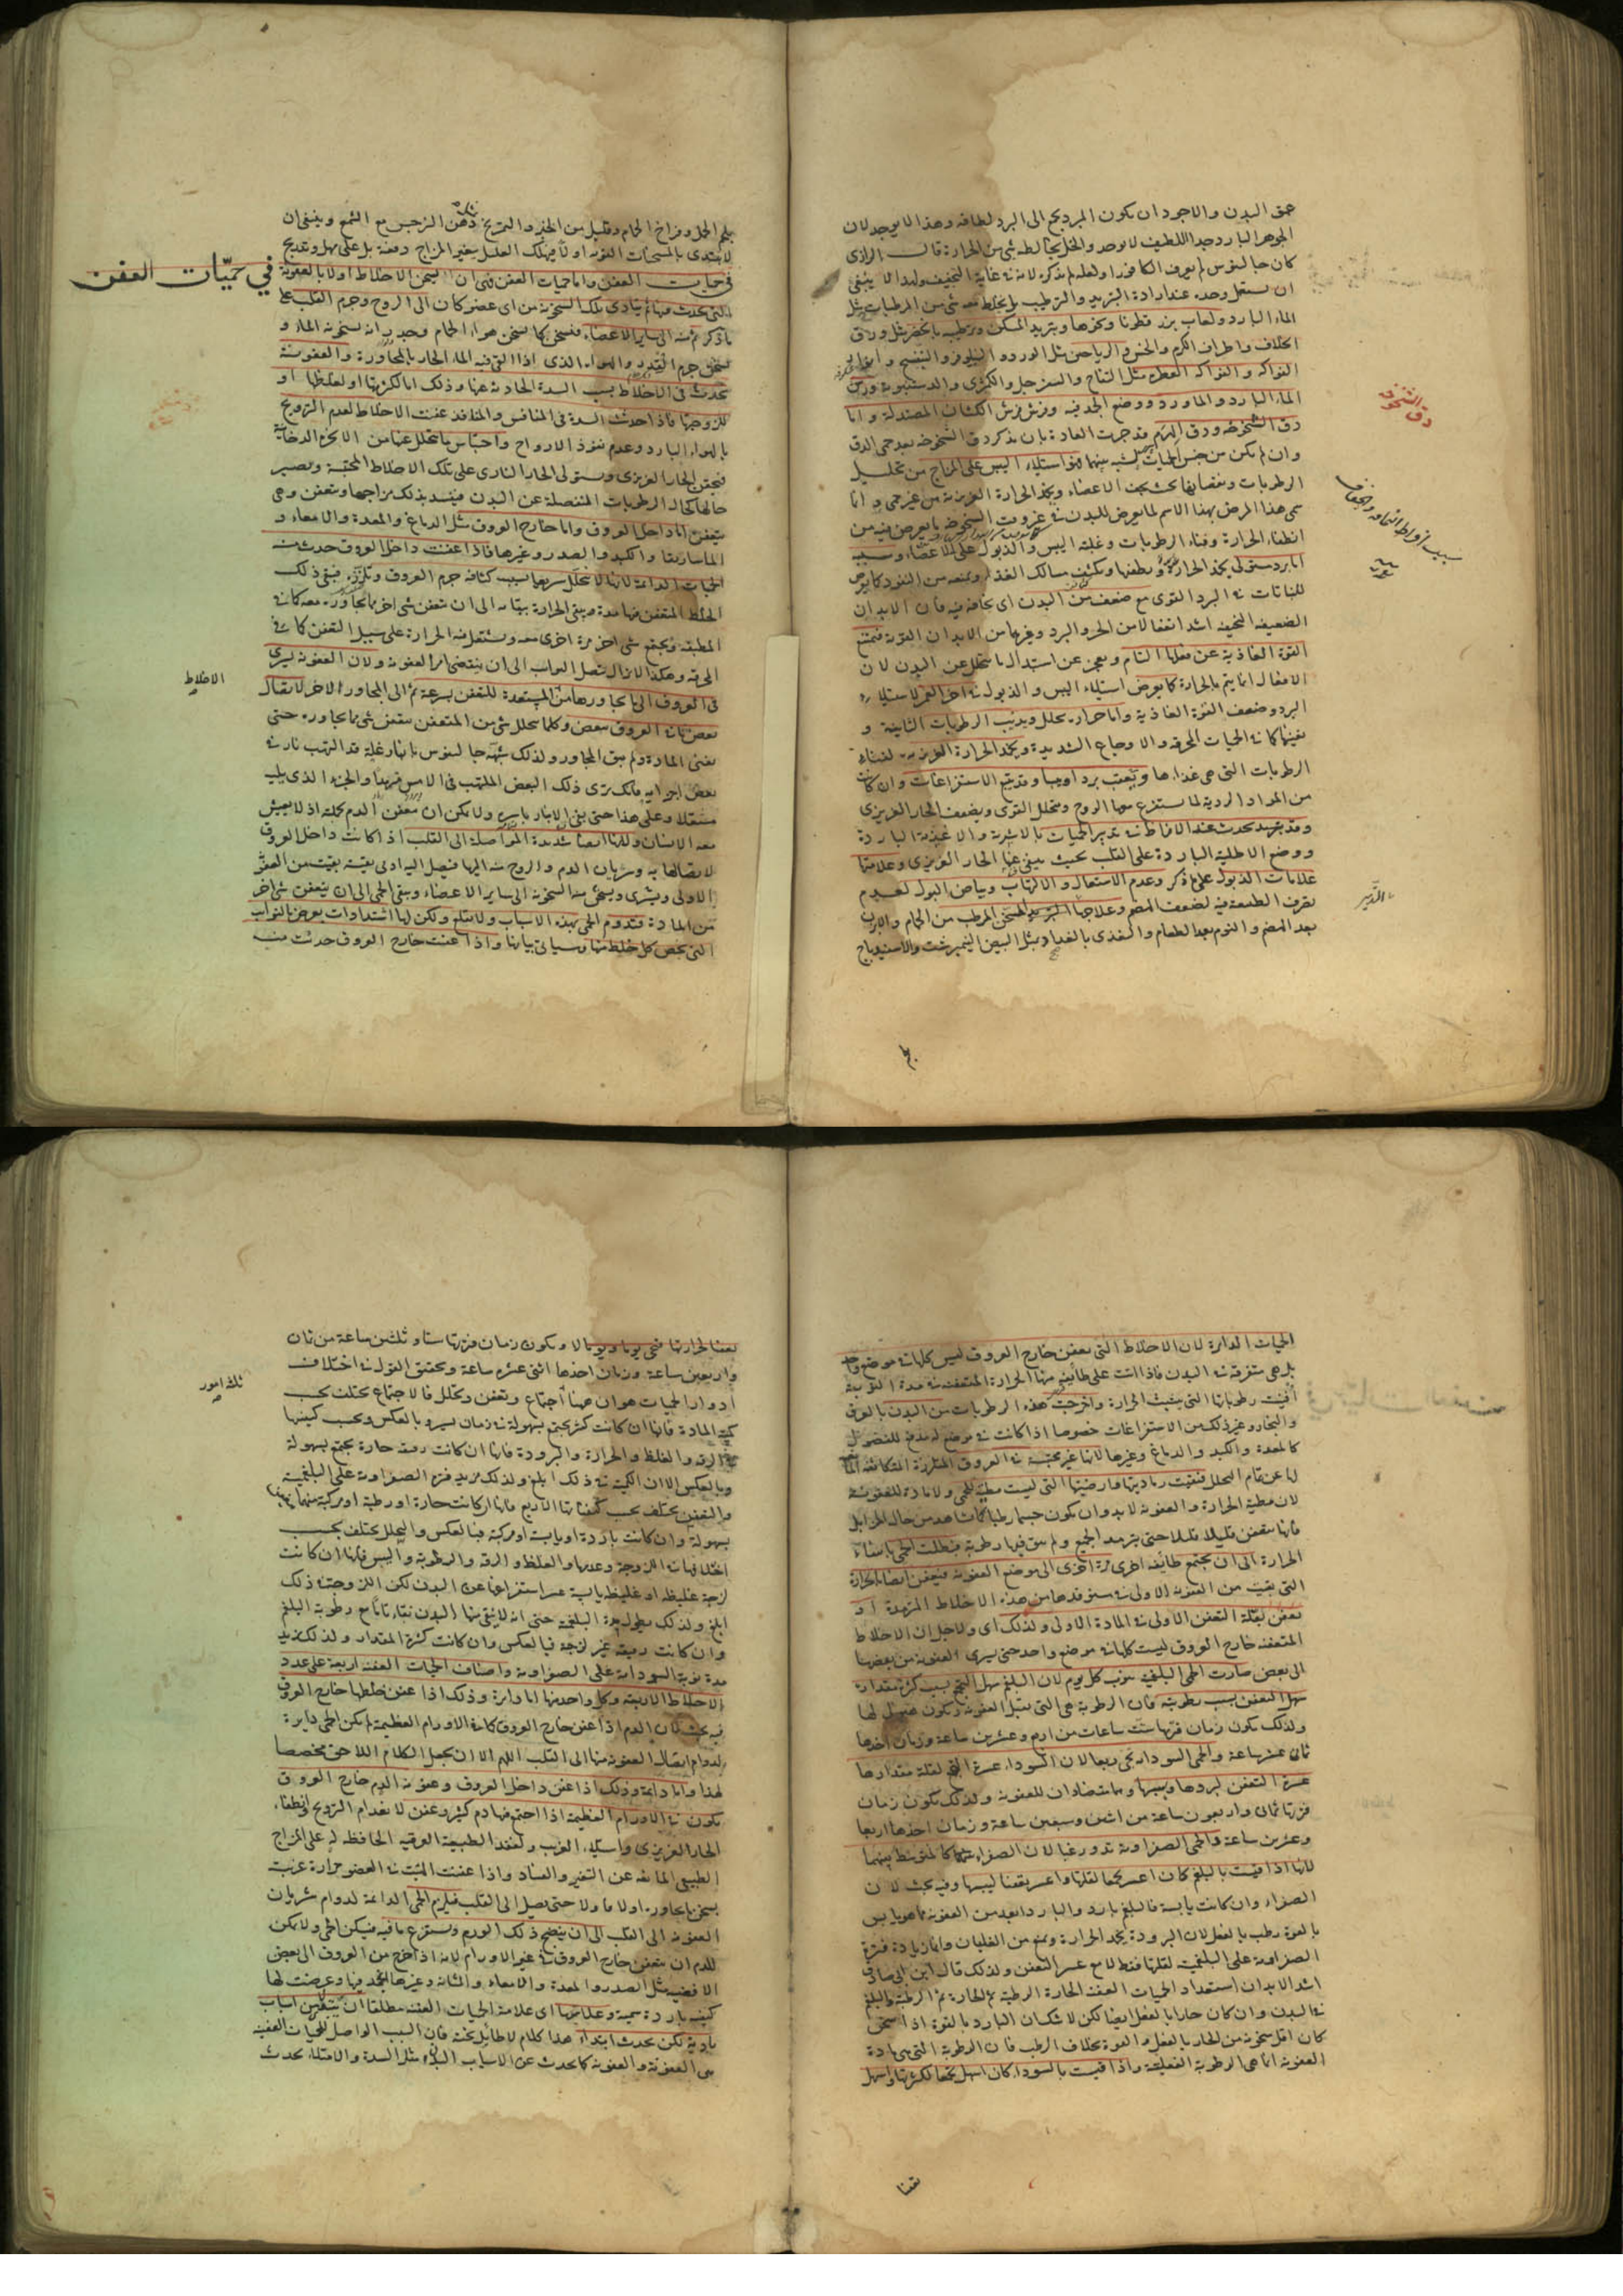 عمق البدن والاجود ان يكون المبرد يحتاج الى البرد لطافة وهذا لا يوجد لان
الجوهر البارد جدا اللطيف لا يوجد والخل يخالطه شئ من الحرارة قال الرازى
كان جالينوس لم يعرف الكافور او لعله لم يذكره لانه فى غاية التجفيف ولهذا لا ينبغى
ان يستعمل وحده عند ارادة التبريد والترطيب بل يخلط معه شئ من المرطبات مثل
الماء البارد ولعاب بزر قطونا ونحوها وتبريد المسكن وترطيبه بالخضر مثل ورق
الخلاف واطراف الكرم والخس والرياحين مثل الورد والنيلوفر والبنفسج
الفواكه والفواكه العطرة مثل التفاح والسفرجل والكمثرى والدستنبويه ورش
الماء البارد والماورد ووضع الجمد فيه وفرش فرش الكتان المصندلة واما
دق الشيخوخة ودق الهرم فقد جرت العادة بان يذكر دق الشيخوخة بعد حمى الدق
وان لم يكن من جنس الحميات لشبه بينهما وهو استيلاء اليبس على المزاج من تحليل
الرطوبات ونقصانها بحيث يجف الاعضاء ويخمد الحرارة الغريزية من غير حمى وانما
سمى هذا المرض بهذا الاسم لما يعرض للبدن فى غير وقت الشيخوخة ما يعرض فيه من
انطفاء الحرارة وفناء الرطوبات وغلبة اليبس والذبول على الاعضاء وسببه
اما برد مستولى يخمد الحرارة ويطفئها ويكثف مسالك الغذاء ويمنعه من النفوذ كما يعرض
للنباتات فى البرد القوى مع ضعف من البدن اى نحافة فيه فان الابدان
الضعيفة النحيفة اشد انفعالا من الحر والبرد وغيرهما من الابدان القوية فتمتنع
القوة الغاذية عن فعلها التام ويعجز عن استبدال ما يتحلل عن البدن لان
الافعال انما يتم بالحرارة كما يعرض استيلاء اليبس والذبول فى اخر العمر لاستيلاء
البرد وضعف القوة الغاذية واما حرارة يحلل ويذيب الرطوبات الثانية و
يفنيها كما فى الحميات المحرقة والاوجاع الشديدة ويخمد الحرارة الغريزية لفناء
الرطوبات التى هى غذاءها ويعقب بردا ويبسا وقد يتبع الاستفراغات وان كانت
من المواد الردية لما يستفرغ معها الروح ويتحلل القوى ويضعف الحار الغريزى
وقد يحدث عند الافراط فى تدبير الحميات بالاشربة والاغذية الباردة
ووضع الاطلية الباردة على القلب بحيث ينفى عنها الحار الغريزى وعلامتها
علامات الذبول على ما ذكر وعدم الاشتعال والالتهاب وبياض البول لعدم
تصرف الطبيعة فيه لضعف الهضم وعلاجها التدبير المسخن المرطب من الحمام والابزن
بعد الهضم والنوم بعد الطعام والتغذى بالغداء مثل البيض النيمبرشت والاسفيدباج
دق الشيخوخة
بلحم الحمل وفراخ الحمام وقليل من الخمر والتمريخ بدهن النرجس مع الشمع وينبغى ان
لا يبتدى بالمسخنات القوية اولا فيهلك العليل بتغير المزاج دفعة بل على مهل وتدريج
فى حميات العفن
فى حميات العفن واما حميات العفن فهى ان يسخن الاخلاط اولا بالعفونة
التى يحدث فيها ثم يتادى تلك السخونة من اى عضو كان الى الروح وجرم القلب على
ما ذكر ثم منه الى ساير الاعضاء فتسخن كما يسخن هواء الحمام وجدرانه بسخونة الماء و
يسخن جرم القدر والهواء الذى اذا القى فيه الماء الحار بالمجاورة والعفونة
تحدث فى الاخلاط بسبب السدة الحادثة عنها وذلك اما لكثرتها او لغلظها او
للزوجتها فاذا حدثت السدة فى المنافس والمنافذ عفنت الاخلاط لعدم الترويح
بالهواء البارد وعدم نفوذ الارواح واحتباس ما يتحلل عنها من الابخرة الدخانية
فيختنق الحار الغريزى ويستولى الحار النارى على تلك الاخلاط المحتبسة ويصير
حالها كحال الرطوبات المنفصلة عن البدن فيفسد بذلك مزاجها وتعفن وهى
يتعفن اما داخل العروق واما خارج العروق مثل الدماغ والمعدة والامعاء و
الماساريقا والكبد والصدر وغيرها فاذا عفنت داخل العروق حدث منه
الحميات الدائمة لانها لا يتحلل سريعا بسبب كثافة جرم العروق وتلززه فيبقى ذلك
الخلط المتعفن فيها مدة ويبقى الحرارة ببقائه الى ان يتعفن شئ اخر مما يجاوره معه كما فى
المطبقة ويجتمع شئ اخر مرة اخرى معه ويشتعل فيه الحرارة على سبيل التعفن كما فى
المحرقة وهكذا لا يزال يتصل النوايب الى ان ينقضى اثر العفونة ولان العفونة يسرى
الاخلاط
فى العروق الى ما يجاورها من المستعدة للتعفن بسرعة ثم الى المجاور الاخر لاتصال
بعض ما فى العروق ببعض وكلما تحلل شئ من المتعفن يتعفن شئ مما يجاوره حتى
يفنى المادة ولم يبق المجاور ولذلك شبهه جالينوس بانبار غلة قد التهب نار فى
بعض اجزايه
مشتعلا وعلى هذا حتى يفنى الانبار باسره ولا يمكن ان يتعفن الدم كله اذ لا يعيش
معه الانسان ولانها ايضا شديدة المواصلة الى القلب اذا كانت داخل العروق
لاتصالها به وسريان الدم والروح منه اليها فيصل اليه ادنى بقية بقيت من العفونة
الاولى ويشرى ويسخن منه السخونة الى ساير الاعضاء ويبقى الحمى الى ان يتعفن شئ اخر
من المادة فتدوم الحمى بهذه الاسباب ولا يقلع ولكن لها اشتدادات يعرض بالنوايب
التى يخص كل خلط منها وسياتى بيانها واذا عفنت خارج العروق حدثت منه
الحميات الدايرة لان الاخلاط التى يعفن خارج العروق ليس كلها فى موضع واحد
بل هى متفرقة فى البدن فاذا اتت على طائفة منها الحرارة المتعفنة فى مدة النوبة
افنت رطوباتها التى يتشبث الحرارة واخرجت هذه الرطوبات من البدن بالعرق
والبخار وغير ذلك من الاستفراغات خصوصا اذا كانت فى موضع له مدفع للفضول
كالمعدة والكبد والدماغ وغيرها لانها غير محتبسة فى العروق المتلززة المتكاثفة المانعة
لها عن تمام التحلل فبقيت رماديتها وارضيتها التى ليست مطية للحمى ولا مادة للعفونة
لان مطية الحرارة والعفونة لا بد وان يكون جسما رطبا كما يشاهد من حال المزابل
فانها يتعفن قليلا قليلا حتى يترمد الجميع ولم يبق فيها رطوبة فبطلت الحمى بانتفاء
الحرارة الى ان يجتمع طائفة اخرى مرة اخرى الى موضع العفونة فيتعفن ايضا بالحرارة
التى بقيت من العفونة الاولى فى مستوقدها من هذه الاخلاط المترمدة او
تعفن لعلة التعفن الاولى فى المادة الاولى ولذلك اى ولاجل ان الاخلاط
المتعفنة خارج العروق ليست كلها فى موضع واحد حتى يسرى العفونة من بعضها
الى بعض صارت الحمى البلغمية ينوب كل يوم لان البلغم سهل التجمع بسبب كثرة مقداره
سهل التعفن بسبب رطوبته فان الرطوبة هى التى يقبل العفونة
ولذلك يكون زمان فترتها ست ساعات من اربع وعشرين ساعة وزمان اخذها
ثمانى عشر ساعة والحمى السوداوية تجى ربعا لان السوداء عسرة التجمع لقلة مقدارها
عسرة التعفن لبردها ويبسها وهما متضادان للعفونة ولذلك يكون زمان
فترتها ثمان واربعون ساعة من اثنين وسبعين ساعة وزمان اخذها اربعا
وعشرين ساعة والحمى الصفراوية تدور غبا لان الصفراء كالمتوسط بينهما
لانها اذا قيست بالبلغم كان اعسر تجمعا لقلتها واعسر تعفنا ليبسها وفيه بحث لان
الصفراء وان كانت يابسة فالبلغم بارد والبارد ابعد من العفونة مما هو يابس
بالقوة رطب بالفعل لان البرودة يخمد الحرارة ويمنع من الغليان وانما زيادة فترة
الصفراوية على البلغمية لقلتها فقط لا مع عسر التعفن ولذلك قال ابن ابى صادق
اشد الابدان استعداد الحميات العفنة الحارة الرطبة ثم الحارة ثم الرطبة والبلغم
فى البدن وان كان حارا بالفعل ايضا لكن لا شك ان البارد بالقوة اذا سخن
كان اقل سخونة من الحار بالفعل والقوة بخلاف الرطب فان الرطوبة التى هى مادة
العفونة انما هى الرطوبة الفعلية واذا قيست بالسوداء كان اسهل تجمعا لكثرتها واسهل
تعفنا
تعفنا لحرارتها فتجى يوما ويوما لا ويكون زمان فترتها ستا وثلثين ساعة من ثمان
واربعين ساعة وزمان اخذها اثنى عشرة ساعة وتحقيق القول فى اختلاف
ثلثة امور
ادوار الحميات هو ان ههنا اجتماع وتعفن وتحلل فالاجتماع يختلف بحسب
كمية المادة فانها ان كانت كثيرة يجتمع بسهولة فى زمان يسير وبالعكس وبحسب كيفيتها
فى الرقة والغلظ والحرارة والبرودة فانها ان كانت رقيقة حارة يجتمع بسهولة
وبالعكس الا ان الكمية فى ذلك ابلغ ولذلك يزيد فترة الصفراوية على البلغمية
والتعفن يختلف بحسب كيفياتها الاربع فانها ان كانت حارة او رطبة او مركبة منهما يتعفن
بسهولة وان كانت باردة او يابسة او مركبة فبالعكس والتحلل يختلف بحسب
اختلافها فى اللزوجة وعدمها والغلظ والرقة والرطوبة واليبس فانها ان كانت
لزجة غليظة او غليظة يابسة عسر استفراغها عن البدن لكن اللزوجة فى ذلك
ابلغ ولذلك يطول مدة البلغمية حتى انه لا ينقى منها البدن نقاء تاما مع رطوبة البلغم
وان كانت رقيقة غير لزجة فبالعكس وان كانت كثيرة المقدار ولذلك يزيد
مدة نوبة السوداوية على الصفراوية واصناف الحميات العفنة اربعة على عدد
الاخلاط الاربعة وكل واحد منها اما دايرة وذلك اذا عفن خلطها خارج العروق
فيه بحث لان الدم اذا عفن خارج العروق كما فى الاورام العظيمة لم يكن الحمى دايرة
لدوام ايصال العفونة منها الى القلب اللهم الا ان يجعل الكلام اللاحق مخصصا
لهذا واما دائمة وذلك اذا عفن داخل العروق وعفونة الدم خارج العروق
يكون فى الاورام العظيمة اذا اجتمع فيها دم كثير وعفن لانعدام الترويح وانطفاء
الحار الغريزى واستيلاء الغريب ولفقد الطبيعة العرقية الحافظة له على المزاج
الطبيعى المانعة عن التغير والفساد واذا عفنت المادة فى العضو حرارة غريبة
يسخن ما يجاوره اولا فاولا حتى يصل الى القلب فيلزم الحمى الدائمة لدوام سريان
العفونة الى القلب الى ان ينضج ذلك الورم ويستفرغ ما فيه فيسكن الحمى ولا يمكن
للدم ان يتعفن خارج العروق فى غير الاورام لانه اذا خرج من العروق الى بعض
الافضية مثل الصدر والمعدة والامعاء والمثانة وغيرها انجمد فيها وعرضت لها
كيفية باردة سمية وعلاماتها اى علامة الحميات العفنة مطلقا ان يتقدمها اسباب
بادية لكن يحدث ابتداء هذا كلام لا طائل تحته فان السبب الواصل للحميات العفنية
هى العفونة والعفونة كما يحدث عن الاسباب البدنية مثل السدة والامتلاء يحدث